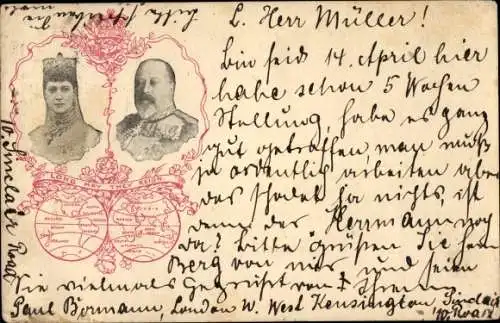 L. Herr Müller!
Bin seid 14. April hier
habe schon 5 Wochen
Stellung, habe es ganz
gut getroffen man muß
ja ordentlich arbeiten aber
das schadet ja nichts, ist
denn der Herrmann noch
da? bitte grüßen Sie
Berg von mir und seien
Sie vielmals Gegrüßt von Ihrem
Paul Bormann, London W. West Kensington Sinclair
10. Road
10. Sinclair Road
bitte
LONG MAY THEY REIGN